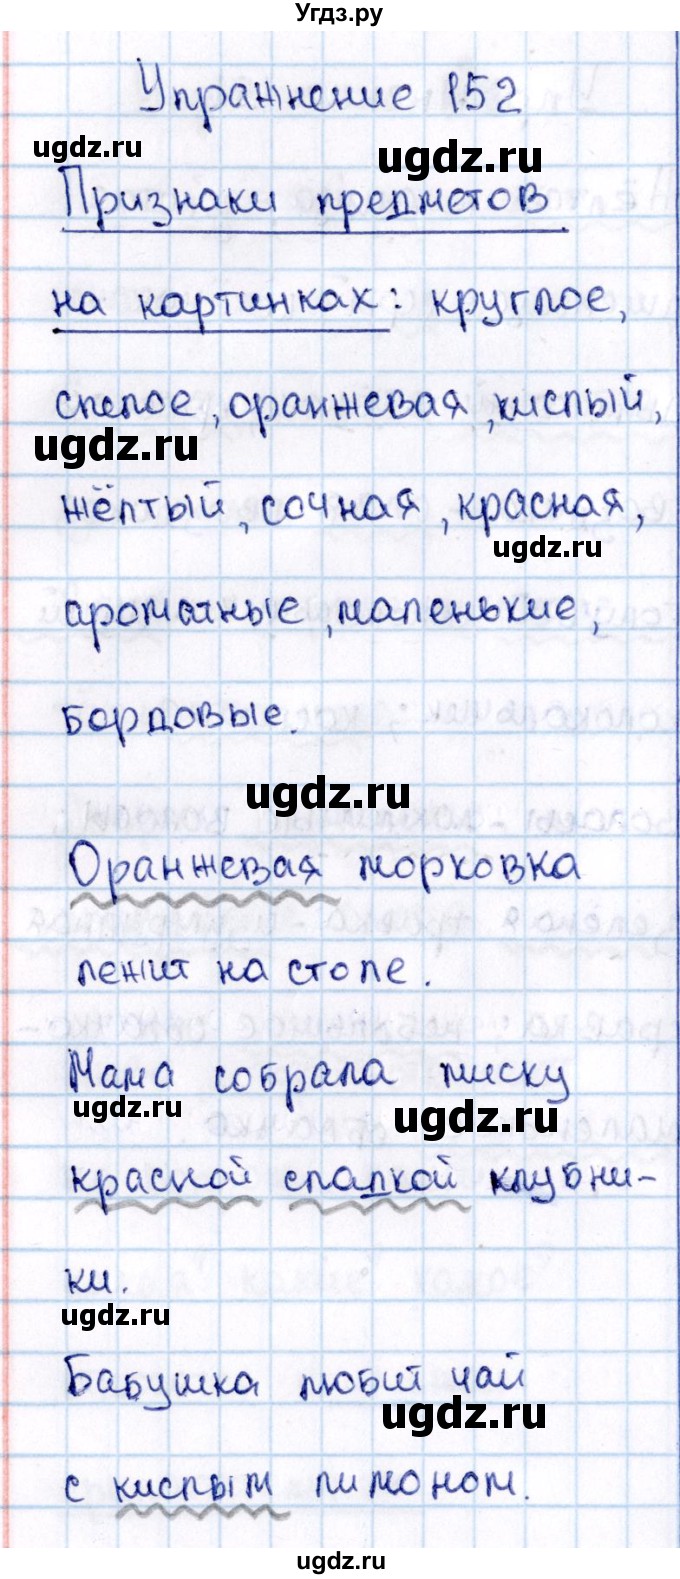 Угдз.ру
Упражнение 152
ugdz.ru
ugdz.ru
Признаки предметов
на картинках: круглое,
спелое, оранжевая, кислый,
ugdz.ru
жёлтый, сочная, красная,
ugdz.ru
ароматные, маленькие,
бордовые.
ugdz.ru
Оранжевая морковка
лежит на столе.
Мама собрала миску
ugdz.ru
ugdz.ru
красной сладкой клубни-
ки.
ugdz.ru
Бабушка любит чай
ugdz.ru
с кислым лимоном.
ugdz.ru